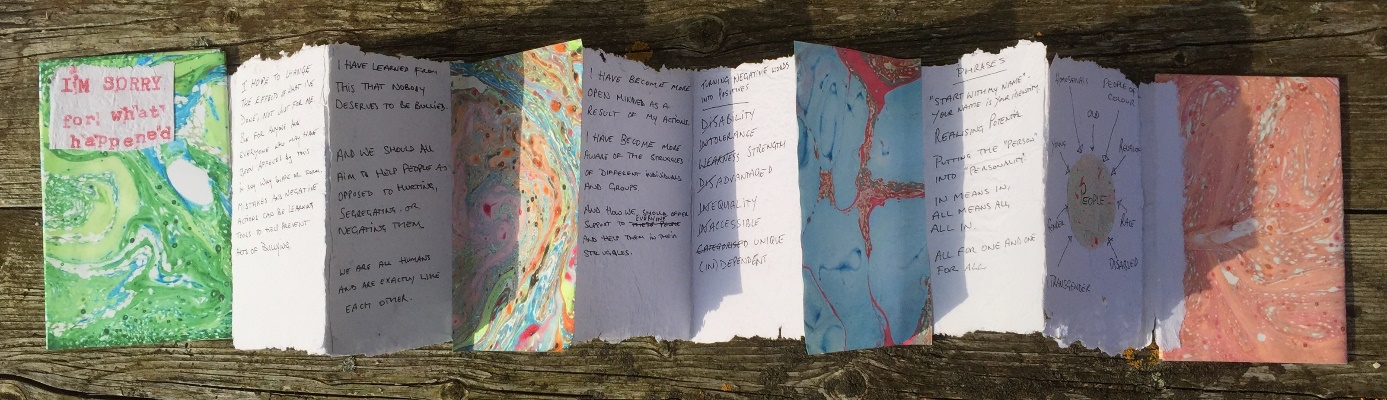 I'M SORRY
for: what
happene'd
I HOPE TO CHANGE
THE EFFECTS OF WHAT I'VE
DONE, NOT JUST FOR ME
BUT FOR
EVERYONE WHO MAY HAVE
BEEN AFFECTED BY THIS
IN SOME WAY
MISTAKES AND NEGATIVE
ACTIONS CAN BE LEARNING
TOOLS TO HELP PREVENT
ACTS OF BULLYING.
I HAVE LEARNED FROM
THIS THAT NOBODY
DESERVES TO BE BULLIED.
AND WE SHOULD ALL
AIM TO HELP PEOPLE AS
OPPOSED TO HURTING,
SEGREGATING OR
NEGATING THEM.
WE ARE ALL HUMANS
AND ARE EXACTLY LIKE
EACH OTHER.
I HAVE BECOME MORE
OPEN MINDED AS A
RESULT OF MY ACTIONS.
I HAVE BECOME MORE
AWARE OF THE STRUGGLES
OF DIFFERENT INDIVIDUALS
AND GROUPS.
AND HOW WE SHOULD OFFER
EVERYONE
SUPPORT TO THESE PEOPLE
AND HELP THEM IN THEIR
STRUGGLES.
TURNING NEGATIVE WORDS
INTO POSITIVES
DISABILITY
INTOLERANCE
WEAKNESS STRENGTH
DISADVANTAGED
INEQUALITY
INACCESSIBLE
CATEGORISED UNIQUE
(IN)DEPENDENT
PHRASES
"START WITH MY NAME".
YOUR NAME IS YOUR IDENTITY.
REALISING POTENTIAL
PUTTING THE "PERSON"
INTO "PERSONALITY"
IN MEANS IN,
ALL MEANS ALL
ALL IN.
ALL FOR ONE AND ONE
FOR ALL
HOMELESS
PEOPLE OF
COLOUR
OLD
YOUNG
PEOPLE
RACE
DISABLED
TRANSGENDER